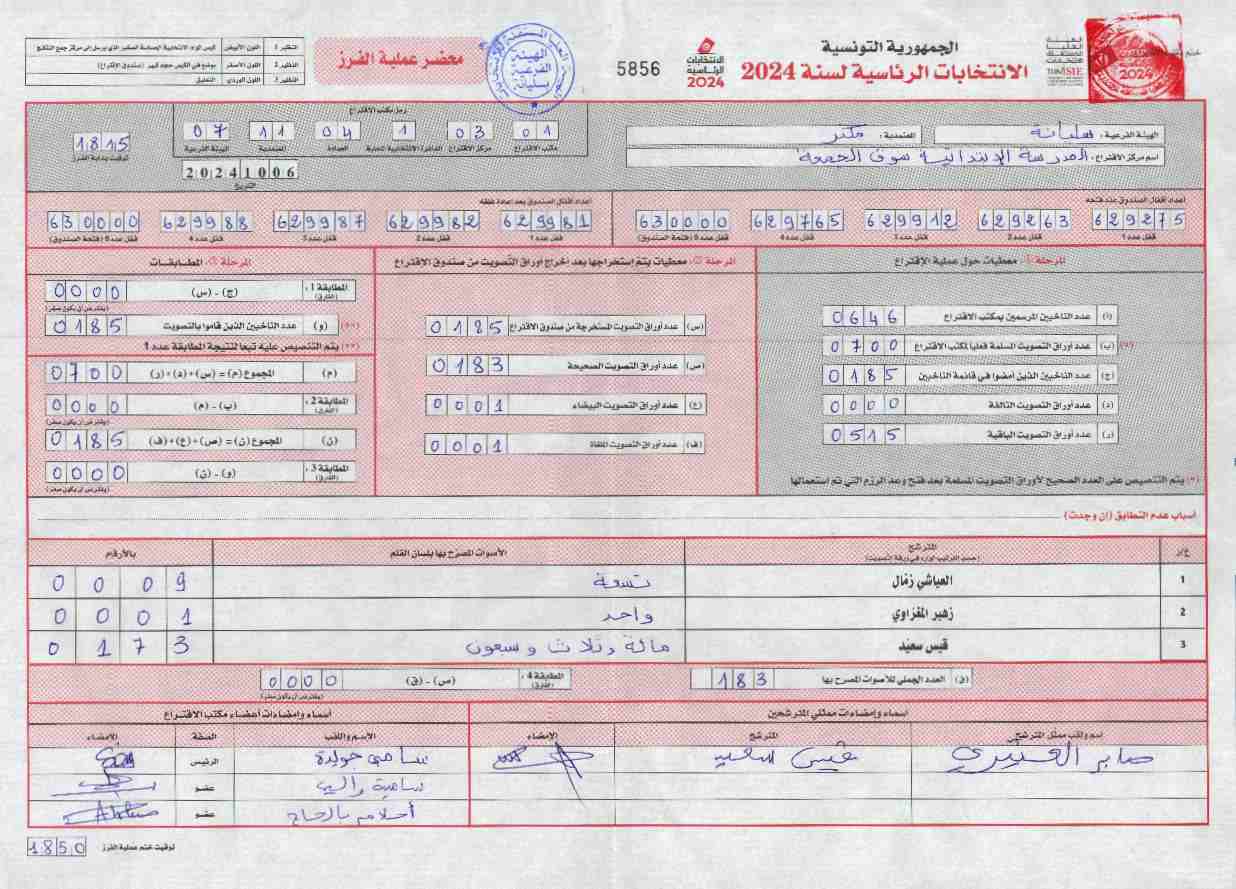 الجمهورية التونسية
الانتخابات الرئاسية لسنة 2024
الانتخابات الرئاسية 2024
5856
محضر عملية الفرز
الهيئة الفرعية بسليانة
النظير 1 اللون الأبيض
النظير 2 اللون الأصفر
النظير 3 اللون الوردي التعليق
الهيئة الفرعية : سليانة المعتمدية : مكثر
اسم مركز الاقتراع : المدرسة الابتدائية سوق الجمعة
رمز مكتب الاقتراع
01 03 1 04 11 07
مكتب الاقتراع مركز الاقتراع الدائرة الانتخابية العمادة المعتمدية الهيئة الفرعية
1815
توقيت بداية الفرز
20241006
التاريخ
أعداد أقفال الصندوق عند فتحه
629275 629263 629912 629765 630000
قفل عدد 1 قفل عدد 2 قفل عدد 3 قفل عدد 4 قفل عدد 5 (فتحة الصندوق)
أعداد أقفال الصندوق بعد إعادة غلقه
629981 629982 629987 629988 630000
قفل عدد 1 قفل عدد 2 قفل عدد 3 قفل عدد 4 قفل عدد 5 (فتحة الصندوق)
المرحلة 1: معطيات حول عملية الإقتراع
(أ) عدد الناخبين المرسمين بمكتب الاقتراع 0646
(*) (ب) عدد أوراق التصويت المسلمة فعليا لمكتب الاقتراع 0700
(ج) عدد الناخبين الذين أمضوا في قائمة الناخبين 0185
(د) عدد أوراق التصويت التالفة 0000
(ر) عدد أوراق التصويت الباقية 0515
(*) يتم التنصيص على العدد الصحيح لأوراق التصويت المسلمة بعد فتح وعد الرزم التي تم استعمالها
المرحلة 2: معطيات يتم إستخراجها بعد إخراج أوراق التصويت من صندوق الإقتراع
(س) عدد أوراق التصويت المستخرجة من صندوق الاقتراع 0185
(ص) عدد أوراق التصويت الصحيحة 0183
(ع) عدد أوراق التصويت البيضاء 0001
(ف) عدد أوراق التصويت الملغاة 0001
المرحلة 3: المطابقات
المطابقة 1 : (الفارق) (ج) - (س) 0000
(يفترض أن يكون صفر)
(**) (و) عدد الناخبين الذين قاموا بالتصويت 0185
(**) يتم التنصيص عليه تبعا لنتيجة المطابقة عدد 1
(م) المجموع (م) = (س)+(د)+(ر) 0700
المطابقة 2 : (الفارق) (ب) - (م) 0000
(يفترض أن يكون صفر)
(ن) المجموع (ن) = (ص)+(ع)+(ف) 0185
المطابقة 3 : (الفارق) (و) - (ن) 0000
(يفترض أن يكون صفر)
أسباب عدم التطابق (إن وجدت)
ع/ر المترشح (حسب الترتيب الوارد في ورقة التصويت) الأصوات المصرح بها بلسان القلم بالأرقام
1 العياشي زمال تسعة 0009
2 زهير المغزاوي واحد 0001
3 قيس سعيّد مائة وثلاث وسبعون 0173
(ق) العدد الجملي للأصوات المصرح بها 183
المطابقة 4 : (الفارق) (ص) - (ق) 0000
(يفترض أن يكون صفر)
أسماء وإمضاءات ممثلي المترشحين
اسم ولقب ممثل المترشح المترشح الإمضاء
صابر العنيزي قيس سعيد
أسماء وإمضاءات أعضاء مكتب الاقتراع
الاسم واللقب الصفة الإمضاء
سامي خولدة الرئيس
سامية عضو
أحلام بالحاج عضو
توقيت ختم عملية الفرز 1850